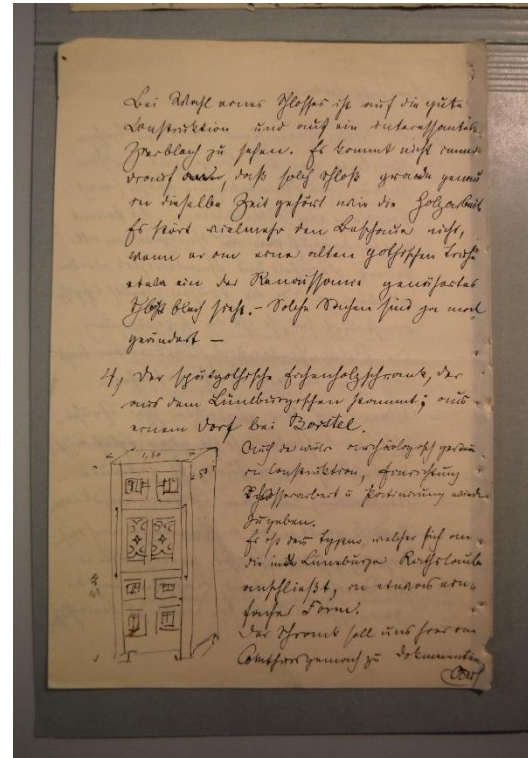 Bei Wahl eines Schlosses ist auf die gute
Construktion und auf ein interessantes
Zierblech zu sehen. Es kommt nicht immer
darauf, daß solch Schloß gerade genau
in dieselbe Zeit gehört wie die Holzarbeit
Es stört vielmehr den Beschauer nicht,
wenn er an einer alten gothischen Truhe
etwa ein der Renaissance genähertes
blech sieht. – Solche Sachen sind ja mal
geändert –
4, Der spätgothische Eichenholzschrank, der
aus dem Lüneburgischen stammt; aus
einem Dorf bei Borstel.
Auch de wäre archäologisch genau
in Construktion, Einrichtung
Schlosserarbeit u Patinirung wieder
zu geben.
Es ist der Typus, welcher sich an
die in Lüneburger Rathslaube
anschließt, in etwas ein-
facher Form.
Der Schrank soll uns hier am
zu Dokumenten
1,30
50